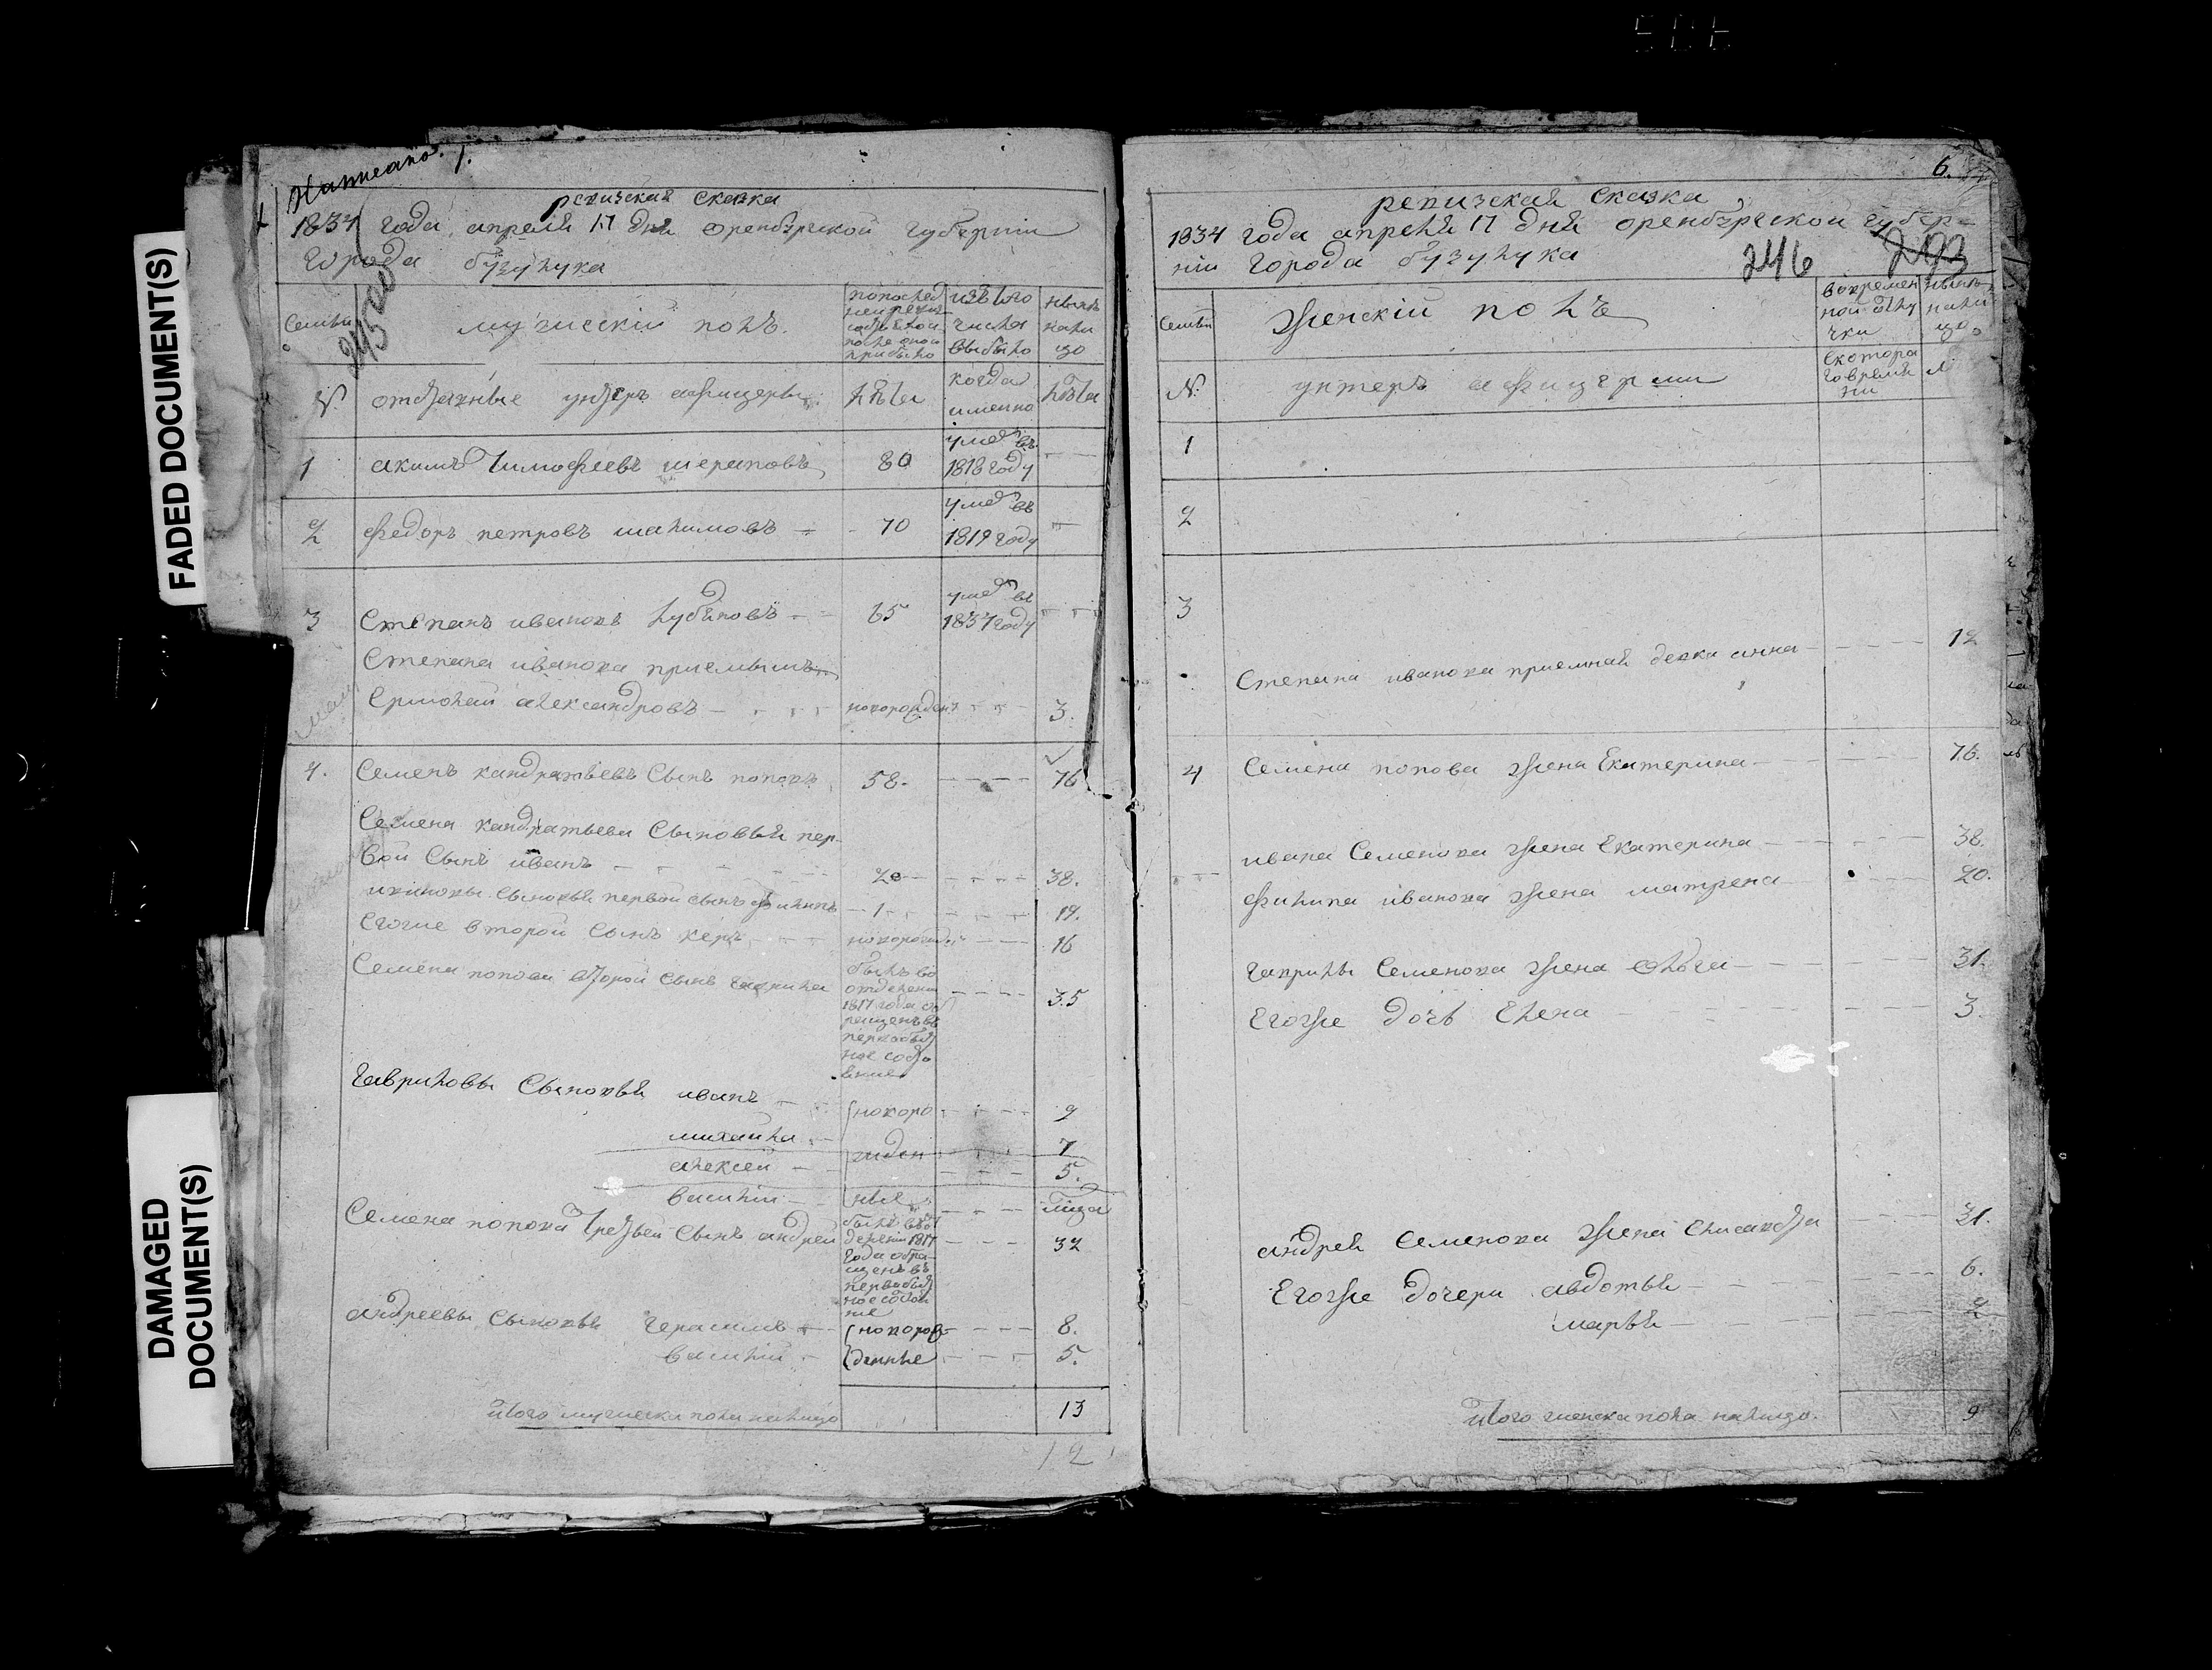 FADED DOCUMENT(S)
DAMAGED
DOCUMENT(S)
1.
ревизская сказка
1834 года апреля 17 дня оренбургской губернии
города бузулука
семьи
мужескій полъ.
изъ того
числа
выбыло
ныне
нали
цо
№
отставные ундеръ афицеры
лѣта
когда
именно
лѣта
1
акимъ тимофеевъ шераповъ
80
умеръ въ
1818 году
2
федоръ петровъ шалимовъ
70
умеръ въ
1819 году
3
Степанъ ивановъ лубановъ
65
умеръ въ
1834 году
Степана иванова приемышъ
Ермолай александровъ
новорожденъ
3.
4.
Семенъ кандратьевъ Сынъ поповъ
58.
76
Семена кандратьева Сыновья пер
вои Сынъ иванъ
20
38.
ивановы Сыновья первои сынъ филипъ
1
19.
Егоже второй Сынъ
новорожд
16
Семена попова второй Сынъ гаврила
былъ во
отделении
1817 года об
ращенъ въ
первобыт
ное состо
яние
35
гавриловы Сыновья иванъ
новоро
9
михаила
жден
7
алексеи
5.
василіи
ные
Семена попова третьеи Сынъ андреи
32
года обра
щенъ въ
первобыт
ное состоя
ние
андреевы Сыновья герасимъ
новорож
8.
василіи
денные
5.
итого мужеска пола налицо
13
12
6.
ревизская сказка
1834 года апреля 17 дня оренбургской губер=
ніи города бузулука
246
293
семьи
женскій полъ
вовремен
ной отлу
чки
ныне
нали
цо
№
унтеръ афицерши
скотора
говреме
ни
1
2
3
Степана иванова приемная девка анна
12
4
Семена попова жена Екатерина
76.
ивана Семенова жена Екатерина
38.
филипа иванова жена матрена
20.
гаврилы Семенова жена ольга
31.
Егоже дочь Елена
3.
андрея Семенова жена
31.
Егоже дочери авдотья
6.
марья
2
итого женска пола налицо.
9